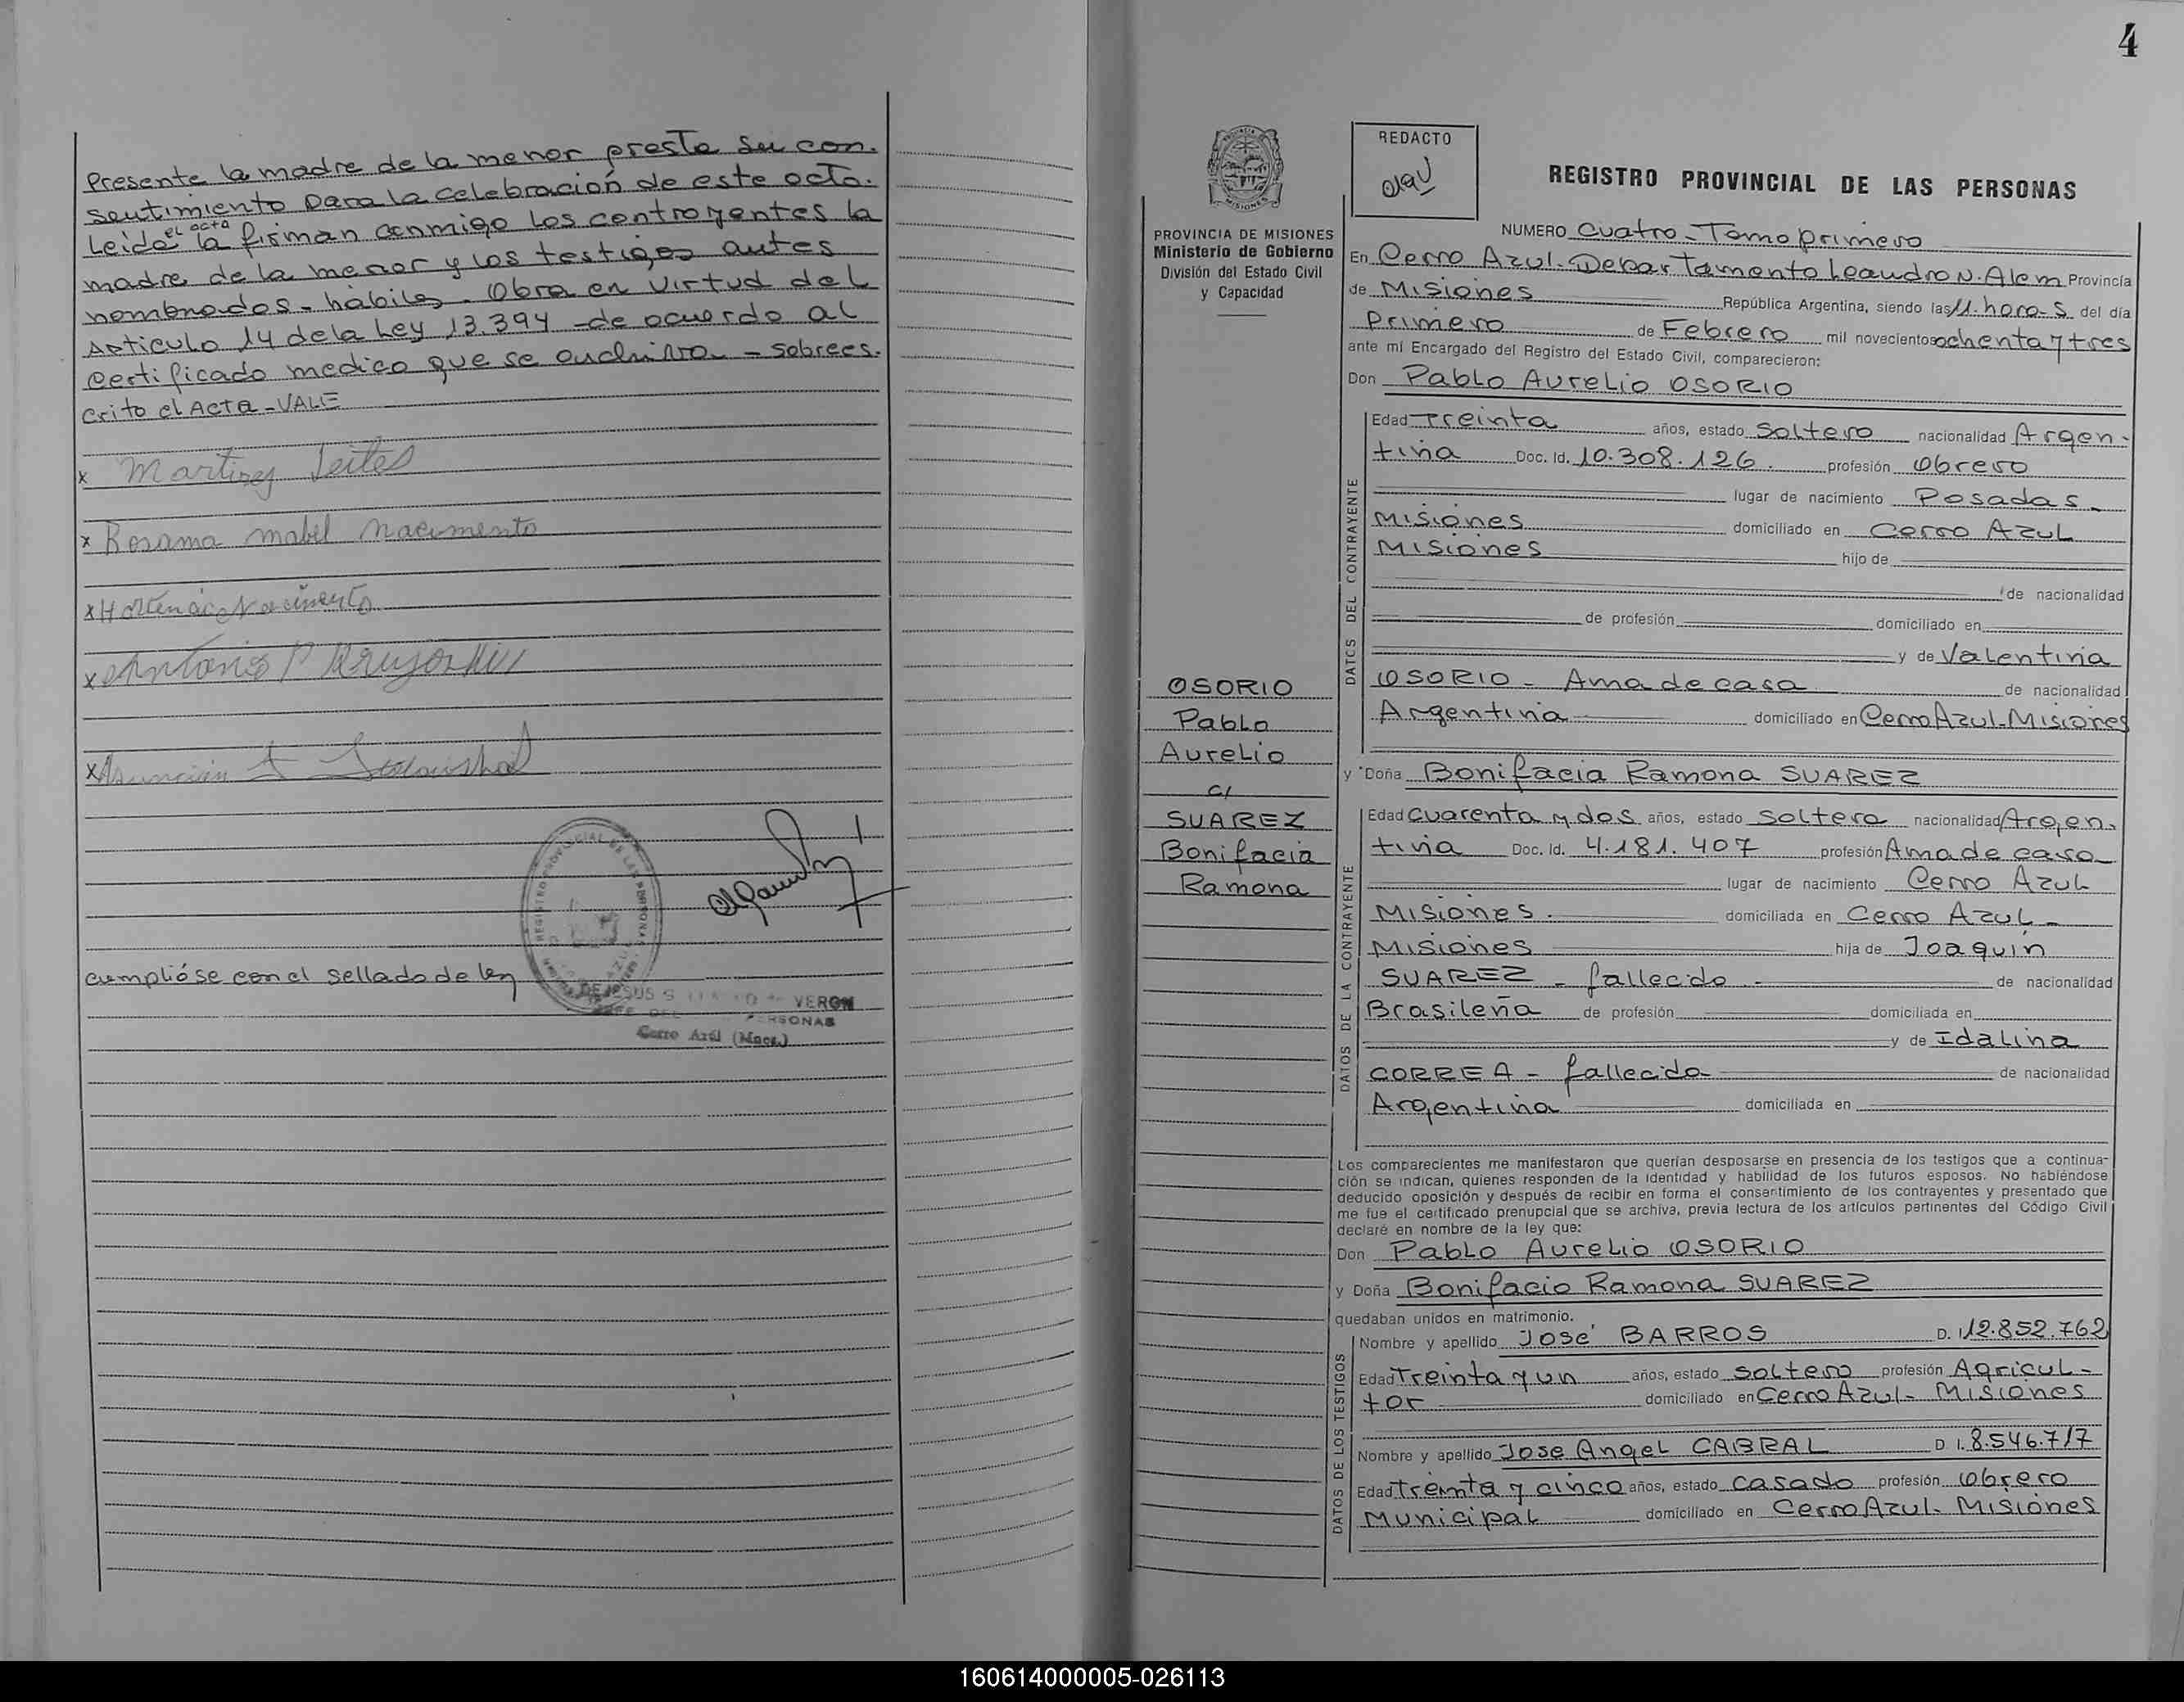 Presente la madre de la menor presta su con.
sentimiento para la celebración de este acto.
Leido el acta la firman conmigo los contrayentes la
madre de la menor y los testigos antes
nombrados - hábiles. Obra en virtud del
Articulo 14 de la Ley 13.394 - de acuerdo al
Certificado medico que se archiva - sobrees.
crito el Acta - VALE
x Martinez Leites
x Rosana mabel nacimento
x Hortencia Nacimento
x Antonio P
x Asunción
Cumplióse con el sellado de ley
VERON
PERSONAS
Cerro Azúl (Mnes.)
4
REDACTO
REGISTRO PROVINCIAL DE LAS PERSONAS
PROVINCIA DE MISIONES
Ministerio de Gobierno
División del Estado Civil
y Capacidad
OSORIO
Pablo
Aurelio
c/
SUAREZ
Bonifacia
Ramona
NUMERO Cuatro - Tomo primero
En Cerro Azul. Departamento Leandro N. Alem Provincia
de Misiones República Argentina, siendo las 11. hora-s del día
Primero de Febrero mil novecientos ochenta y tres
ante mí Encargado del Registro del Estado Civil, comparecieron:
Don Pablo Aurelio OSORIO
DATOS DEL CONTRAYENTE
Edad Treinta años, estado Soltero nacionalidad Argen-
tina Doc. Id. 10.308.126. profesión Obrero
lugar de nacimiento Posadas -
Misiones domiciliado en Cerro Azul
Misiones hijo de
de nacionalidad
de profesión domiciliado en
y de Valentina
OSORIO - Ama de casa de nacionalidad
Argentina domiciliado en Cerro Azul - Misiones
y Doña Bonifacia Ramona SUAREZ
DATOS DE LA CONTRAYENTE
Edad Cuarenta y dos años, estado Soltera nacionalidad Argen-
tina Doc. Id. 4.181.407 profesión Ama de casa
lugar de nacimiento Cerro Azul
Misiones. domiciliada en Cerro Azul -
Misiones hija de Joaquin
SUAREZ - fallecido - de nacionalidad
Brasileña de profesión domiciliada en
y de Idalina
CORREA - fallecida de nacionalidad
Argentina domiciliada en
Los comparecientes me manifestaron que querían desposarse en presencia de los testigos que a continua-
ción se indican, quienes responden de la identidad y habilidad de los futuros esposos. No habiéndose
deducido oposición y después de recibir en forma el consentimiento de los contrayentes y presentado que
me fue el certificado prenupcial que se archiva, previa lectura de los artículos pertinentes del Código Civil
declaré en nombre de la ley que:
Don Pablo Aurelio OSORIO
y Doña Bonifacia Ramona SUAREZ
quedaban unidos en matrimonio.
DATOS DE LOS TESTIGOS
Nombre y apellido José BARROS D. I. 12.852.762
Edad Treinta y un años, estado soltero profesión Agricul-
tor domiciliado en Cerro Azul - Misiones
Nombre y apellido Jose Angel CABRAL D. I. 8.546.717
Edad treinta y cinco años, estado Casado profesión Obrero
Municipal domiciliado en Cerro Azul - Misiones
160614000005-026113